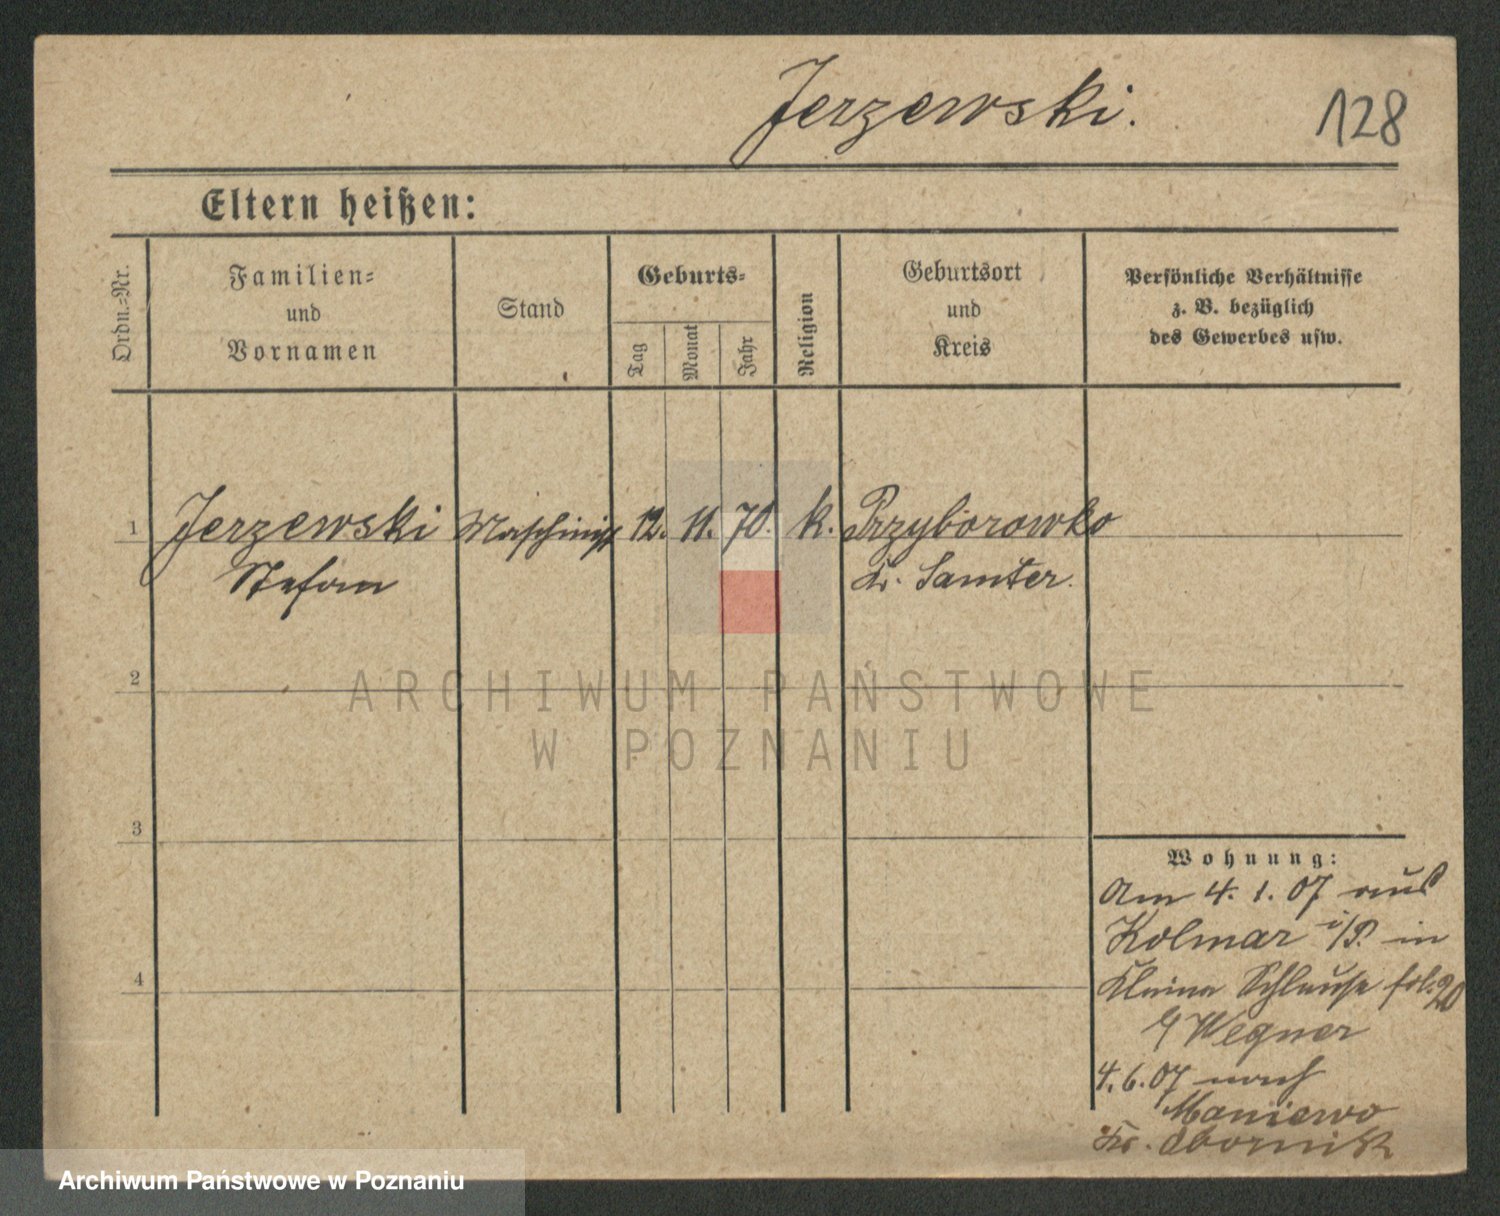 Jerzewski.
128
Eltern heißen:
Ordn.-Nr.
Familien-
und
Vornamen
Stand
Geburts-
Tag
Monat
Jahr
Religion
Geburtsort
und
Kreis
Persönliche Verhältnisse
z. B. bezüglich
des Gewerbes usw.
1 Jerzewski Maschinist 12. 11. 70. k. Przyborowko
Stefan Kr. Samter.
2
3
4
Wohnung:
Am 4. 1. 07 aus
Kolmar i/P. in
Kleine Schleuse fol. 20
b/ Wegner
4. 6. 07 nach
Maniewo
Kr. Obornik
ARCHIWUM PAŃSTWOWE
W POZNANIU
Archiwum Państwowe w Poznaniu